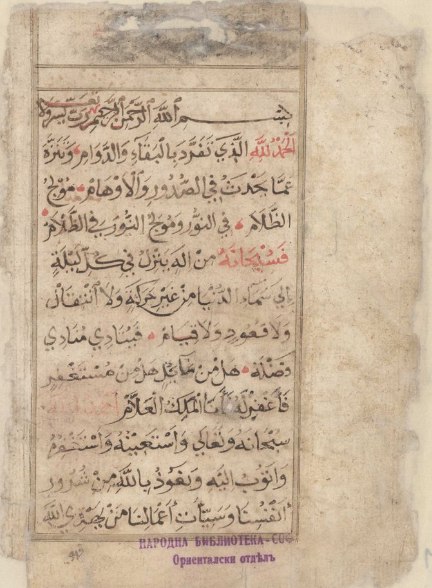 بسم الله الرحمن الرحيم رب يسر
الحمد لله الذي تفرد بالبقاء والدوام وتنزه
عما حدث في الصدور والاوهام مولج
الظلام في النور ومولج النور في الظلام
فسبحانه من اله ينزل في كل ليلة
الى سماء الدنيا من غير حركة ولا انتقال
ولا قعود ولا قيام فينادي منادي
هل من سائل هل من مستغفر
فاغفر له انا الملك العلام
سبحانه وتعالى واستعينه واستغفره
واتوب اليه ونعوذ بالله من شرور
انفسنا وسيئات اعمالنا من يهدي الله
НАРОДНА БИБЛИОТЕКА - СОФ
Ориенталски отдѣлъ